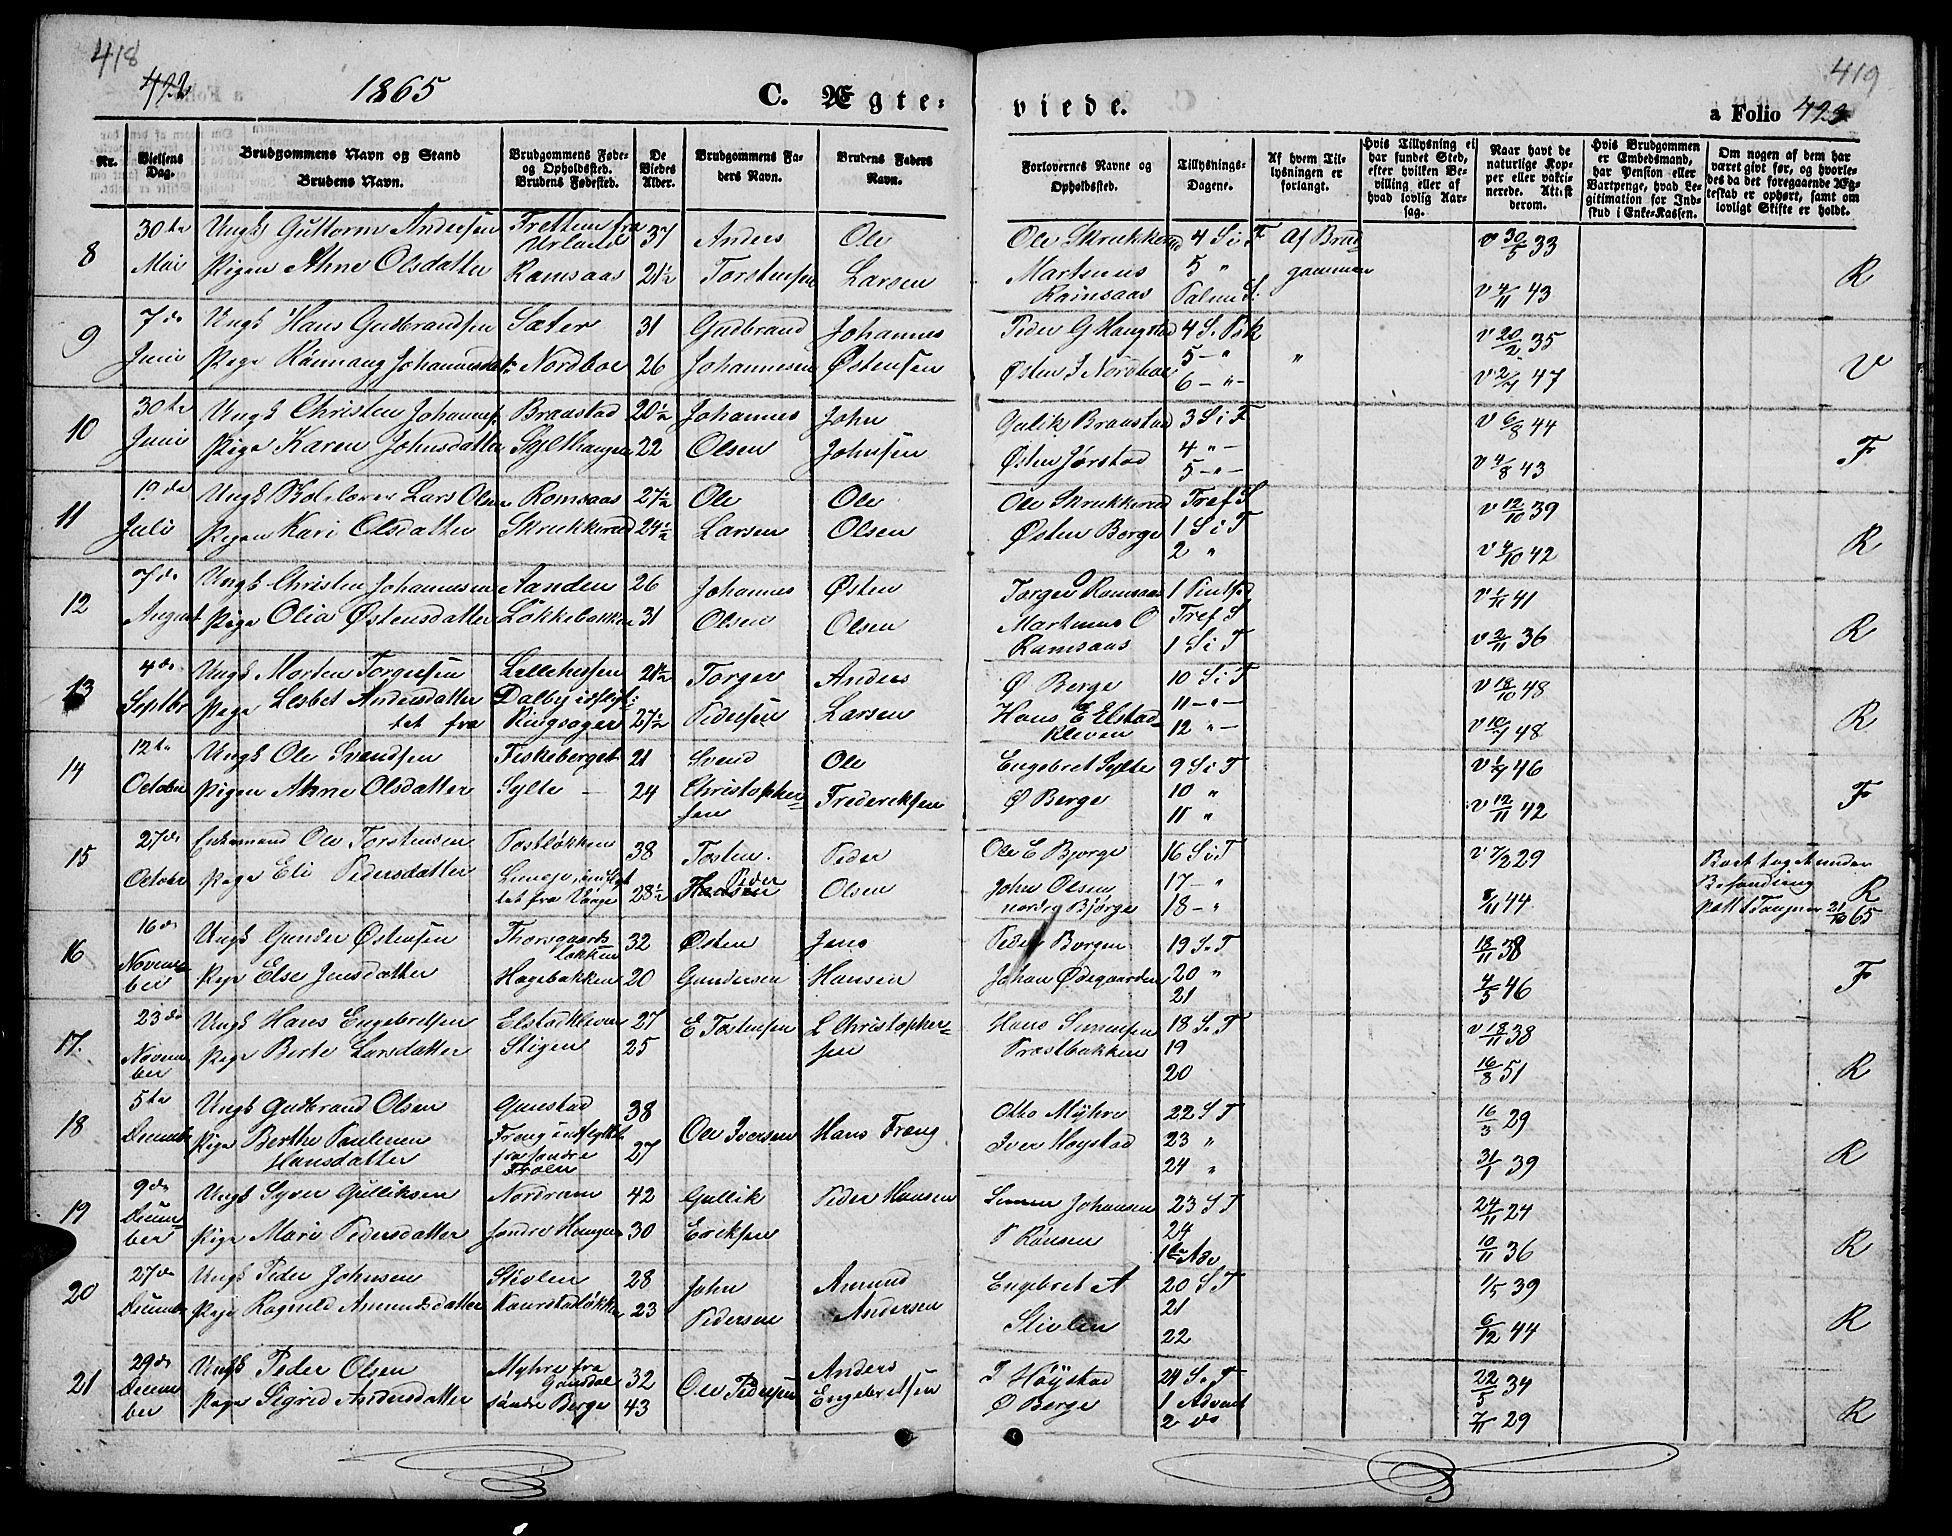 418
419
422
1865
C. Ægte-
viede.
a Folio 423
Nr.
Vielsens Dag.
Brudgommens Navn og Stand
Brudens Navn.
Brudgommens Føde- og Opholdssted. Brudens Fødested.
De Viedes Alder.
Brudgommens Faders Navn.
Brudens Faders Navn.
Forlovernes Navne og Opholdssted.
Tillysnings-Dagene.
Af hvem Tillysningen er forlangt.
Hvis Tillysning ei har fundet Sted, efter hvilken Bevilling eller af hvad lovlig Aarsag.
Naar havt de naturlige Kopper eller vaksinerede. Attist derom.
Hvis Brudgommen er Embedsmand, har Pension eller Vartpenge, hvad Legitimation for Indskud i Enke-Kassen.
Om nogen af dem har været givt før, og hvorledes da det foregaaende Ægteskab er ophørt, samt om lovligt Skifte er holdt.
8 30te Ungk Guttorm Andersen Fretten fra Urland 37 Anders Ole Ole Skrukkerud 4 S i F Af Brud v 30/5 33
Mai Pigen Ahne Olsdatter Ramsaas 21½ Torstensen Larsen Martinus Ramsaas 5 " Palme S. gommen v 4/11 43 R
9 7de Ungk Hans Gudbrandsen Sæter 31 Gudbrand Johannes Peder G Haugstad 4 S. Psk v 20/2 35
Juni Pige Rønnaug Johannesdat: Nordboe 26 Johannesen Østensen Østen J Nordboe 5 - " 6 - " - " v 2/7 47 V
10 30te Ungk Christen Johannes Braastad 20½ Johannes John Gulik Braastad 3 S i T v 6/8 44
Juni Pige Karen Johnsdatter Sylthaugen 22 Olsen Johnsen Østen Jørstad 4 " - 5 - " - v 4/8 43 F
11 Ungk Lars Olsen Romsaas 27½ Ole Ole Ole Skrukkerud Tref S v 12/10 39
Juli Pigen Kari Olsdatter Skrukkerud 24½ Larsen Olsen Østen Berge 1 S i T 2 " v 4/10 42 R
12 7de Ungk Christen Johannesen Sanden 26 Johannes Østen Torger Ramsaas 1 v 1/11 41
August Pige Olia Østensdatter Løkkebakken 31 Olsen Olsen Martinus O Ramsaas Tref S 1 S i T v 2/11 36 R
13 4de Ungk Morten Torgersen Lillehussen 21½ Torger Anders Ø Berge 10 S i T v 18/10 48
Septbr Pige Lesbet Andersdatter Dalby idflyt: 27½ Pedersen Larsen Hans E Elstad 11 - " - v 10/7 48 R
tet fra Ringsager Kleven 12 " -
14 12te Ungk Ole Svendsen Fiskeberget 21 Svend Ole Engebret Sylte 9 S i T v 1/7 46
October Pigen Ahne Olsdatter Sylte - 24 Christophersen Frederiksen Ø Berge 10 " 11 " v 12/11 42 F
15 27de Enkemand Ole Torstensen Tostløkken 38 Tosten Peder Ole E Bjorge 16 S i T v 7/2 29 Boet taget under
October Pige Eli Pedersdatter 28½ Peder Hansen Olsen John Olsen 17 - " 8/11 44 Behandling R
tet fra Vaage nordre Bjørge 18 - " 21/10 65
16 16de Ungk Gunder Østensen Thorsgaardsløkken 32 Østen Jens Peder Borgen 19 S. T 18/11 38
November Pige Else Jensdatter Hagebakken 20 Gundersen Hansen Johan Ødegaarden 20 " 21 4/5 46 F
17. 23de Ungk Hans Engebretsen Elstadkleven 27 E Tostensen L Christophersen Hans Simensen 18 S. T v 18/11 38
November Pige Berte Larsdatter Stigen 25 Præstbakken 19 20 16/8 51 R
18 5te Ungk Gudbrand Olsen Gunstad 38 Ole Iversen Hans Frang Otto Myhre 22 S T 16/3 29
December Pige Berthe Pauline Hansdatter Frang indflyttet fra søndre Frøen 27 Iver Høystad 23 " 24 " 31/1 39 R
19 9de Ungk Syver Gulliksen Nordrum 42 Gullik Peder Hansen Simen Johansen 23 S T 24/11 24
December Pige Mari Pedersdatter søndre Haugen 30 Eriksen P Rønsen 24 1te Adv 10/11 36 R
20 27de Ungk Peder Johnsen Stivlen 28 John Amund Engebret A 20 S T 1/5 39
December Pige Ragnild Amundsdatter Kaurstadløkke 23 Pedersen Andersen Stivlen 21 22 6/12 44 R
21 29de Ungk Peder Olsen Myhre fra Gausdal 32 Ole Pedersen Anders Engebretsen I Høystad 24 S. T 22/5 34
December Pige Sigrid Andersdatter søndre Berge 43 Ø Berge 1 Advent 2 do 7/11 29 R